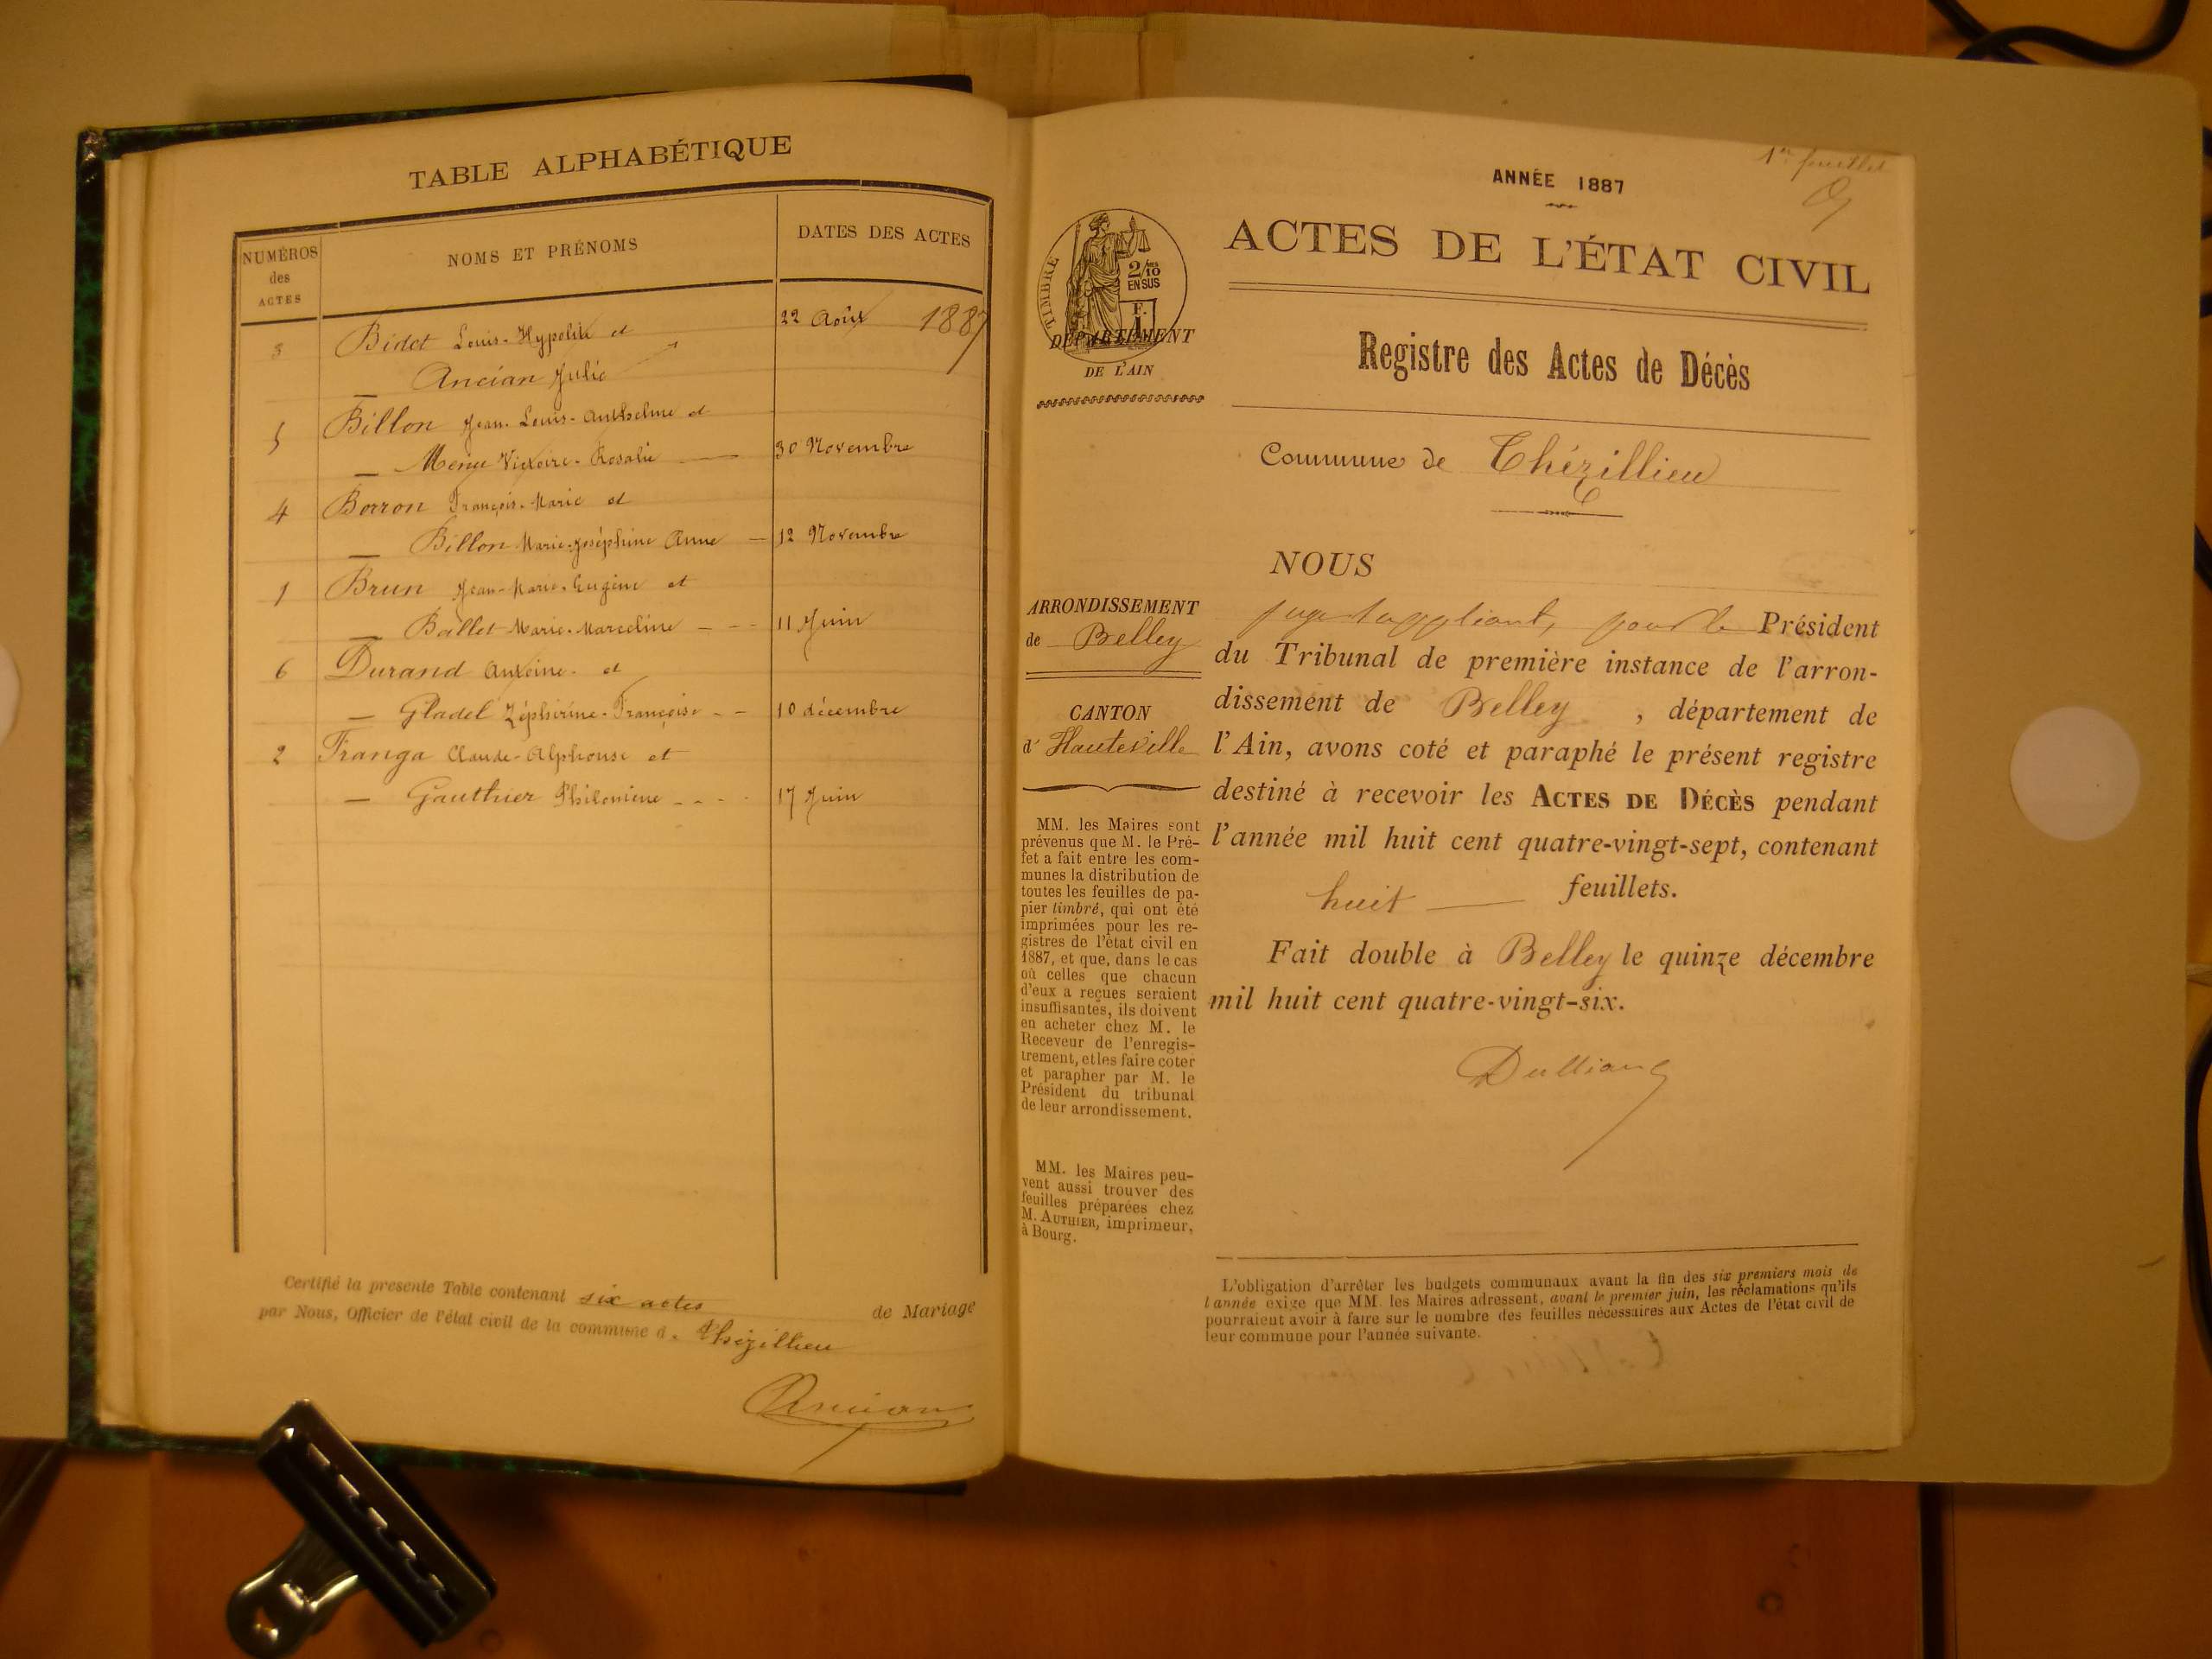 TABLE ALPHABÉTIQUE
NUMÉROS des ACTES
NOMS ET PRÉNOMS
DATES DES ACTES
3 Bidet Louis-Hypolite et 22 Août 1887
— Ancian Julie
5 Billon Jean-Louis-Anthelme et
— Victoire-Rosalie — 30 Novembre
4 Borron François-Marie et
— Billon Marie-Joséphine Anne — 12 Novembre
1 Brun Jean-Marie-Eugène et
— Ballet Marie-Marceline - - - 11 Juin
6 Durand Antoine et
— Gladel Zéphirine-Françoise - - 10 décembre
2 Franga Claude-Alphonse et
— Gauthier Philomène - - - 17 Juin
Certifié la présente Table contenant six actes de Mariage
par Nous, Officier de l'état civil de la commune d. Thézillieu
Ancian
1er feuillet
ANNÉE 1887
ACTES DE L'ÉTAT CIVIL
TIMBRE
2/10 EN SUS
F. 1
DÉPARTEMENT
DE L'AIN
Registre des Actes de Décès
Commune de Thézillieu
NOUS
ARRONDISSEMENT
de Belley
CANTON
d' Hauteville
juge suppléant, pour le Président
du Tribunal de première instance de l'arron-
dissement de Belley, département de
l'Ain, avons coté et paraphé le présent registre
destiné à recevoir les ACTES DE DÉCÈS pendant
l'année mil huit cent quatre-vingt-sept, contenant
huit — feuillets.
Fait double à Belley le quinze décembre
mil huit cent quatre-vingt-six.
MM. les Maires sont
prévenus que M. le Pré-
fet a fait entre les com-
munes la distribution de
toutes les feuilles de pa-
pier timbré, qui ont été
imprimées pour les re-
gistres de l'état civil en
1887, et que, dans le cas
où celles que chacun
d'eux a reçues seraient
insuffisantes, ils doivent
en acheter chez M. le
Receveur de l'enregis-
trement, et les faire coter
et parapher par M. le
Président du tribunal
de leur arrondissement.
MM. les Maires peu-
vent aussi trouver des
feuilles préparées chez
M. AUTHIER, imprimeur,
à Bourg.
L'obligation d'arrêter les budgets communaux avant la fin des six premiers mois de
l'année exige que MM. les Maires adressent, avant le premier juin, les réclamations qu'ils
pourraient avoir à faire sur le nombre des feuilles nécessaires aux Actes de l'état civil de
leur commune pour l'année suivante.